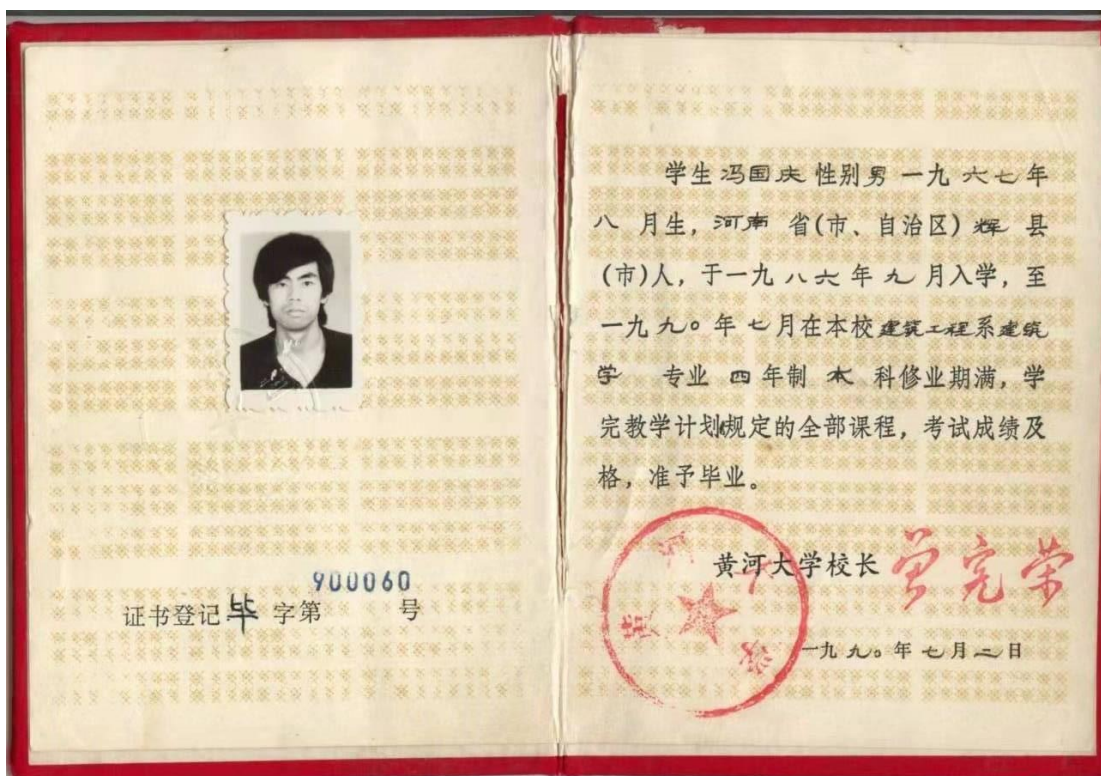 900060
证书登记毕字第 号
学生冯国庆性别男一九六七年
八月生，河南省(市、自治区)辉县
(市)人，于一九八六年九月入学，至
一九九〇年七月在本校建筑工程系建筑
学 专业四年制本科修业期满，学
完教学计划规定的全部课程，考试成绩及
格，准予毕业。
黄河大学校长 曾宪荣
黄河大学
一九九〇年七月二日